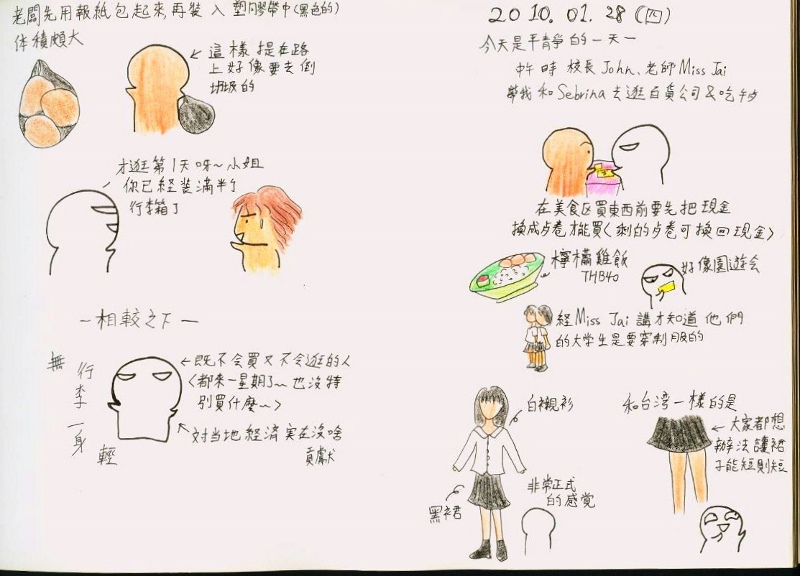 老闆先用報紙包起來再裝入塑膠帶中(黑色的)
体積頗大
←這樣提在路
上好像要去倒
垃圾的
才逛第1天呀~小姐
你已經裝滿半個
行李箱了
—相較之下—
無行李一身輕
←既不会買又不会逛的人
(都來一星期了~也沒特
別買什麼~)
対当地經濟実在沒啥
貢獻
2010.01.28(四)
今天是平靜的一天—
中午時 校長John、老師Miss Jai
帶我和Sebrina去逛百貨公司&吃午餐
在美食区買東西前要先把現金
換成步卷才能買(剩的步卷可換回現金)
檸檬雞飯
THB40
好像園遊会
經Miss Jai講才知道他們
的大学生是要穿制服的
白襯衫
黑裙
非常正式
的感覚
和台湾一樣的是
←大家都想
辦法讓裙
子能短則短